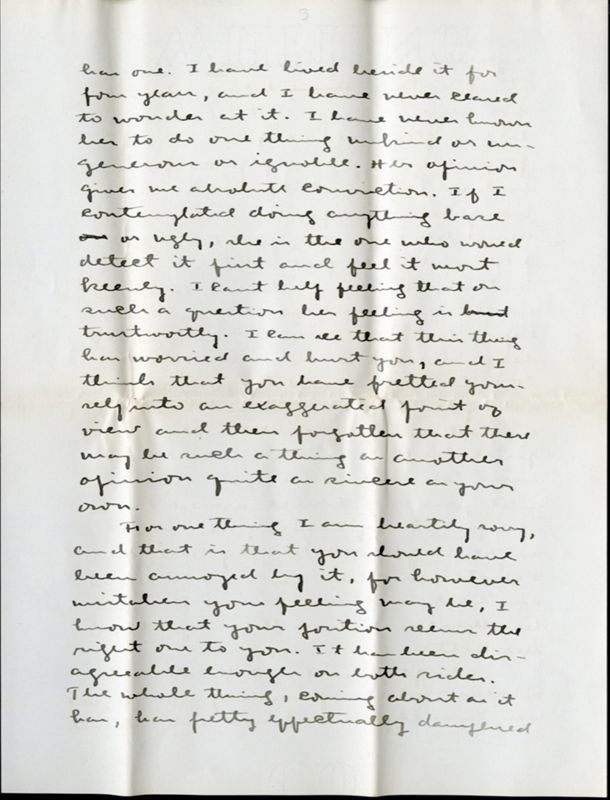 3
has one. I have lived beside it for
four years, and I have never ceased
to wonder at it. I have never known
her to do one thing unkind or un-
generous or ignoble. Her opinion
gives me absolute conviction. If I
contemplated doing anything base
or or ugly, she is the one who would
detect it first and feel it most
keenly. I cant help feeling that on
such a question her feeling is
trustworthy. I can see that this thing
has worried and hurt you, and I
think that you have fretted your-
self into an exaggerated point of
view and then forgotten that there
may be such a thing as another
opinion quite as sincere as your
own.
For one thing I am heartily sorry,
and that is that you should have
been annoyed by it, for however
mistaken your feeling may be, I
know that your position seems the
right one to you. It has been dis-
agreeable enough on both sides.
The whole thing, coming about as it
has, has pretty effectually dampened